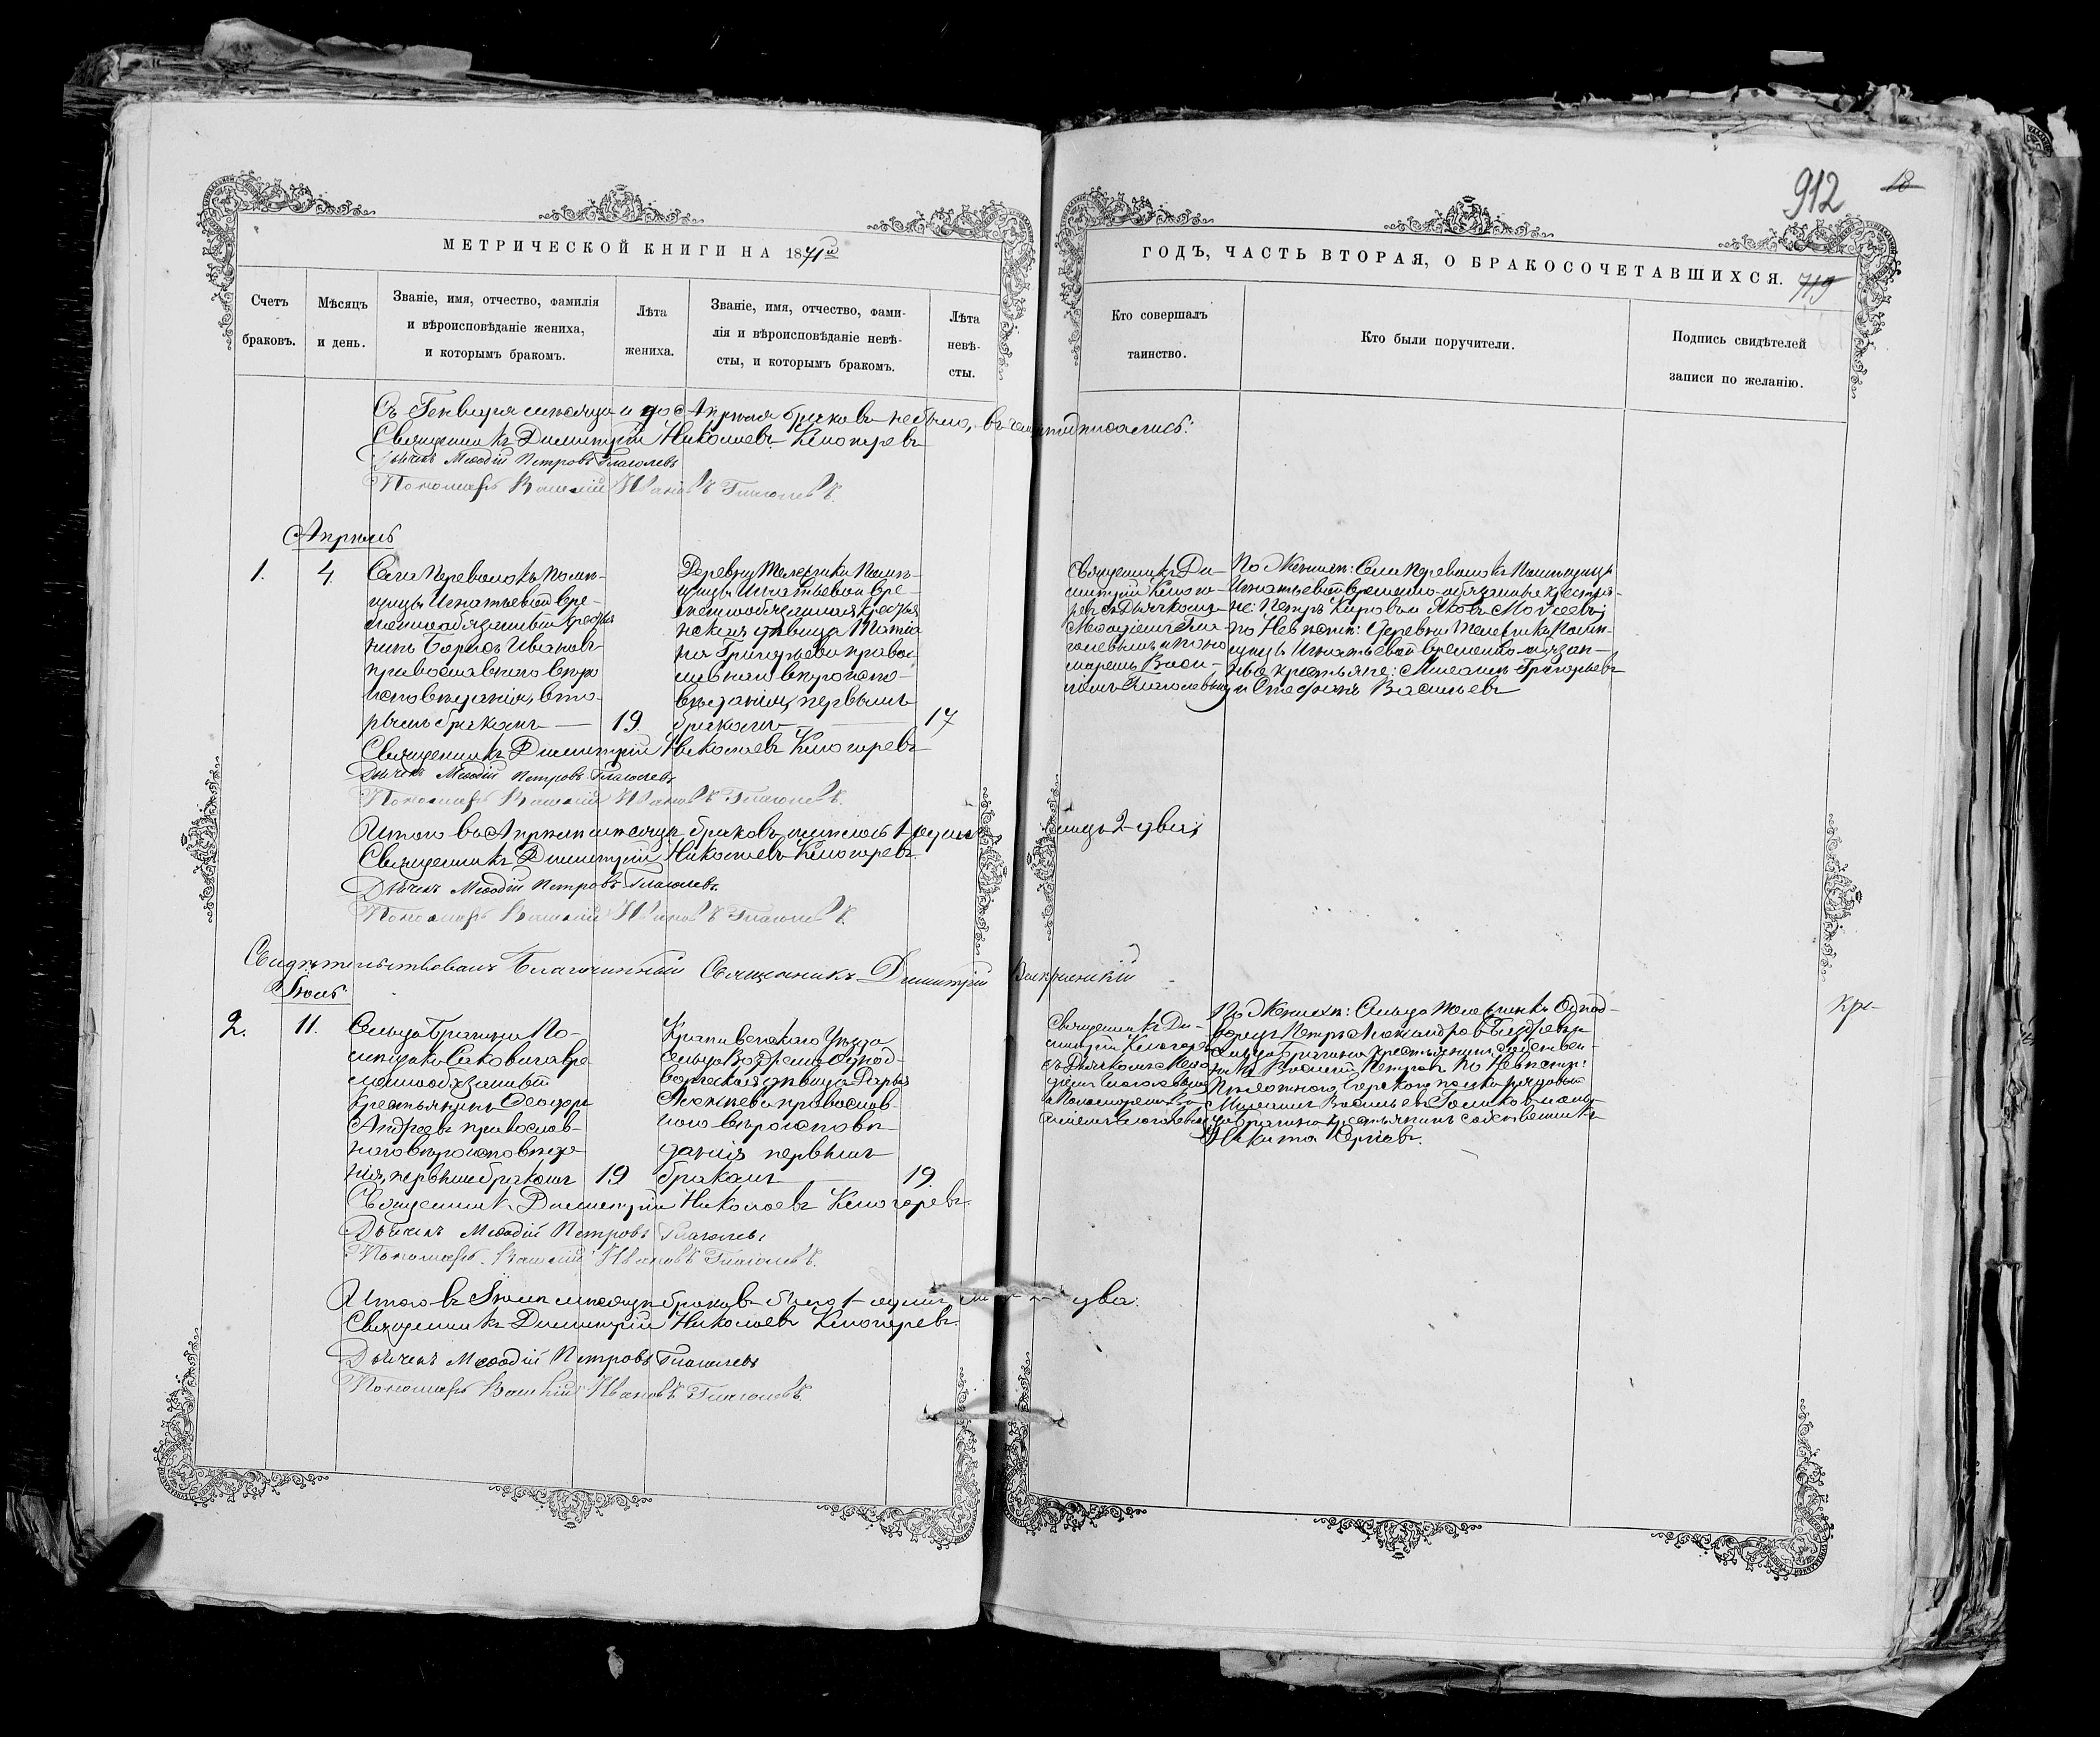 912 18
МЕТРИЧЕСКОЙ КНИГИ НА 1871й
ГОДЪ, ЧАСТЬ ВТОРАЯ, О БРАКОСОЧЕТАВШИХСЯ. 719
Счетъ браковъ.
Мѣсяцъ и день.
Званіе, имя, отчество, фамилія
и вѣроисповѣданіе жениха,
и которымъ бракомъ.
Лѣта
жениха.
Званіе, имя, отчество, фами-
лія и вѣроисповѣданіе невѣ-
сты, и которымъ бракомъ.
Лѣта
невѣ-
сты.
Кто совершалъ
таинство.
Кто были поручители.
Подпись свидѣтелей
записи по желанію.
Съ Генваря мѣсяца и до Апрѣля браковъ небыло, въ чемъ и подписались:
Священникъ Димитрій Николаевъ Ключаревъ
Дьячекъ Меѳодій Петровъ Глаголевъ
Пономарь Василій Ивановъ Глаголевъ.
Апрѣль
1.
4
Села Переволокъ помѣ-
щицы Игнатьевой вре-
меннообязанный кресть
нинъ Борисъ Ивановъ
православнаго вѣро
исповѣданія, вто-
рымъ бракомъ
19.
Деревни Помѣ-
щицы Игнатьевой вре-
меннообязанная кресть
нская дѣвица Татіа
на Григорьева право
славнаго вѣроиспо-
вѣданія, первымъ
бракомъ
17
Священникъ Ди-
митрій Ключа-
ревъ съ Дьячкомъ
Меѳодіемъ Гла-
голевымъ и поно
маремъ Васи-
ліемъ Глаголевымъ
По Женихѣ: Села Переволокъ Помѣщицы
Игнатьевой временно-обязанные крестья-
не: Петръ и Яковъ Моѵсеевъ;
по Невѣстѣ: Деревни Помѣ-
щицы Игнатьевой временно-обязан-
ные крестьяне: Михаилъ Григорьевъ
и Стефанъ Васильевъ
Священникъ Димитрій Николаевъ Ключаревъ
Дьячекъ Меѳодій Петровъ Глаголевъ
Пономарь Василій Ивановъ Глаголевъ.
Итого въ Апрѣлѣ мѣсяцѣ браковъ 1-одинъ
лицъ 2-два;
Священникъ Димитрій Николаевъ Ключаревъ.
Дьячекъ Меѳодій Петровъ Глаголевъ.
Пономарь Василій Ивановъ Глаголевъ.
Свидѣтельствовалъ Благочинный Священникъ Димитрій Воскресенскій
Іюль
2.
11.
Сельца Брагина По-
мѣщика вре
меннообязанный
крестьянинъ Ѳеодоръ
Андреевъ православ-
наго вѣроисповѣда
нія, первымъ бракомъ
19
Крапивенскаго Уѣзда
Сельца Однод-
ворческая дѣвица Дарья
православ-
наго вѣроисповѣ-
данія первымъ
бракомъ
19.
Священникъ Ди-
митрій Ключаревъ
съ Дьячкомъ Меѳо
діемъ Глаголевымъ
и Пономаремъ Ва-
силіемъ Глаголевымъ
По Женихѣ: Сельца Однод-
ворецъ Петръ Александровъ
сельца Брагина крестьянинъ собствен-
никъ Василій Петровъ. По Невѣстѣ:
Пѣхотнаго полка рядовой
Михаилъ Васильевъ
Брагина крестьянинъ собственникъ
Никита Сергѣевъ.
Священникъ Димитрій Николаевъ Ключаревъ.
Дьячекъ Меѳодій Петровъ Глаголевъ
Пономарь Василій Ивановъ Глаголевъ.
Итого въ Іюлѣ мѣсяцѣ браковъ было 1-одинъ
два.
Священникъ Димитрій Николаевъ Ключаревъ.
Дьячекъ Меѳодій Петровъ Глаголевъ
Пономарь Василій Ивановъ Глаголевъ.